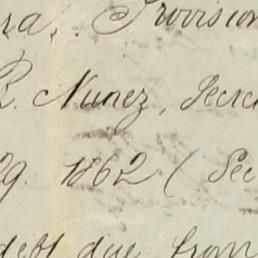 ra,. Provision
R. Nunez, Secre
29. 1862 ( Sec
debt due from